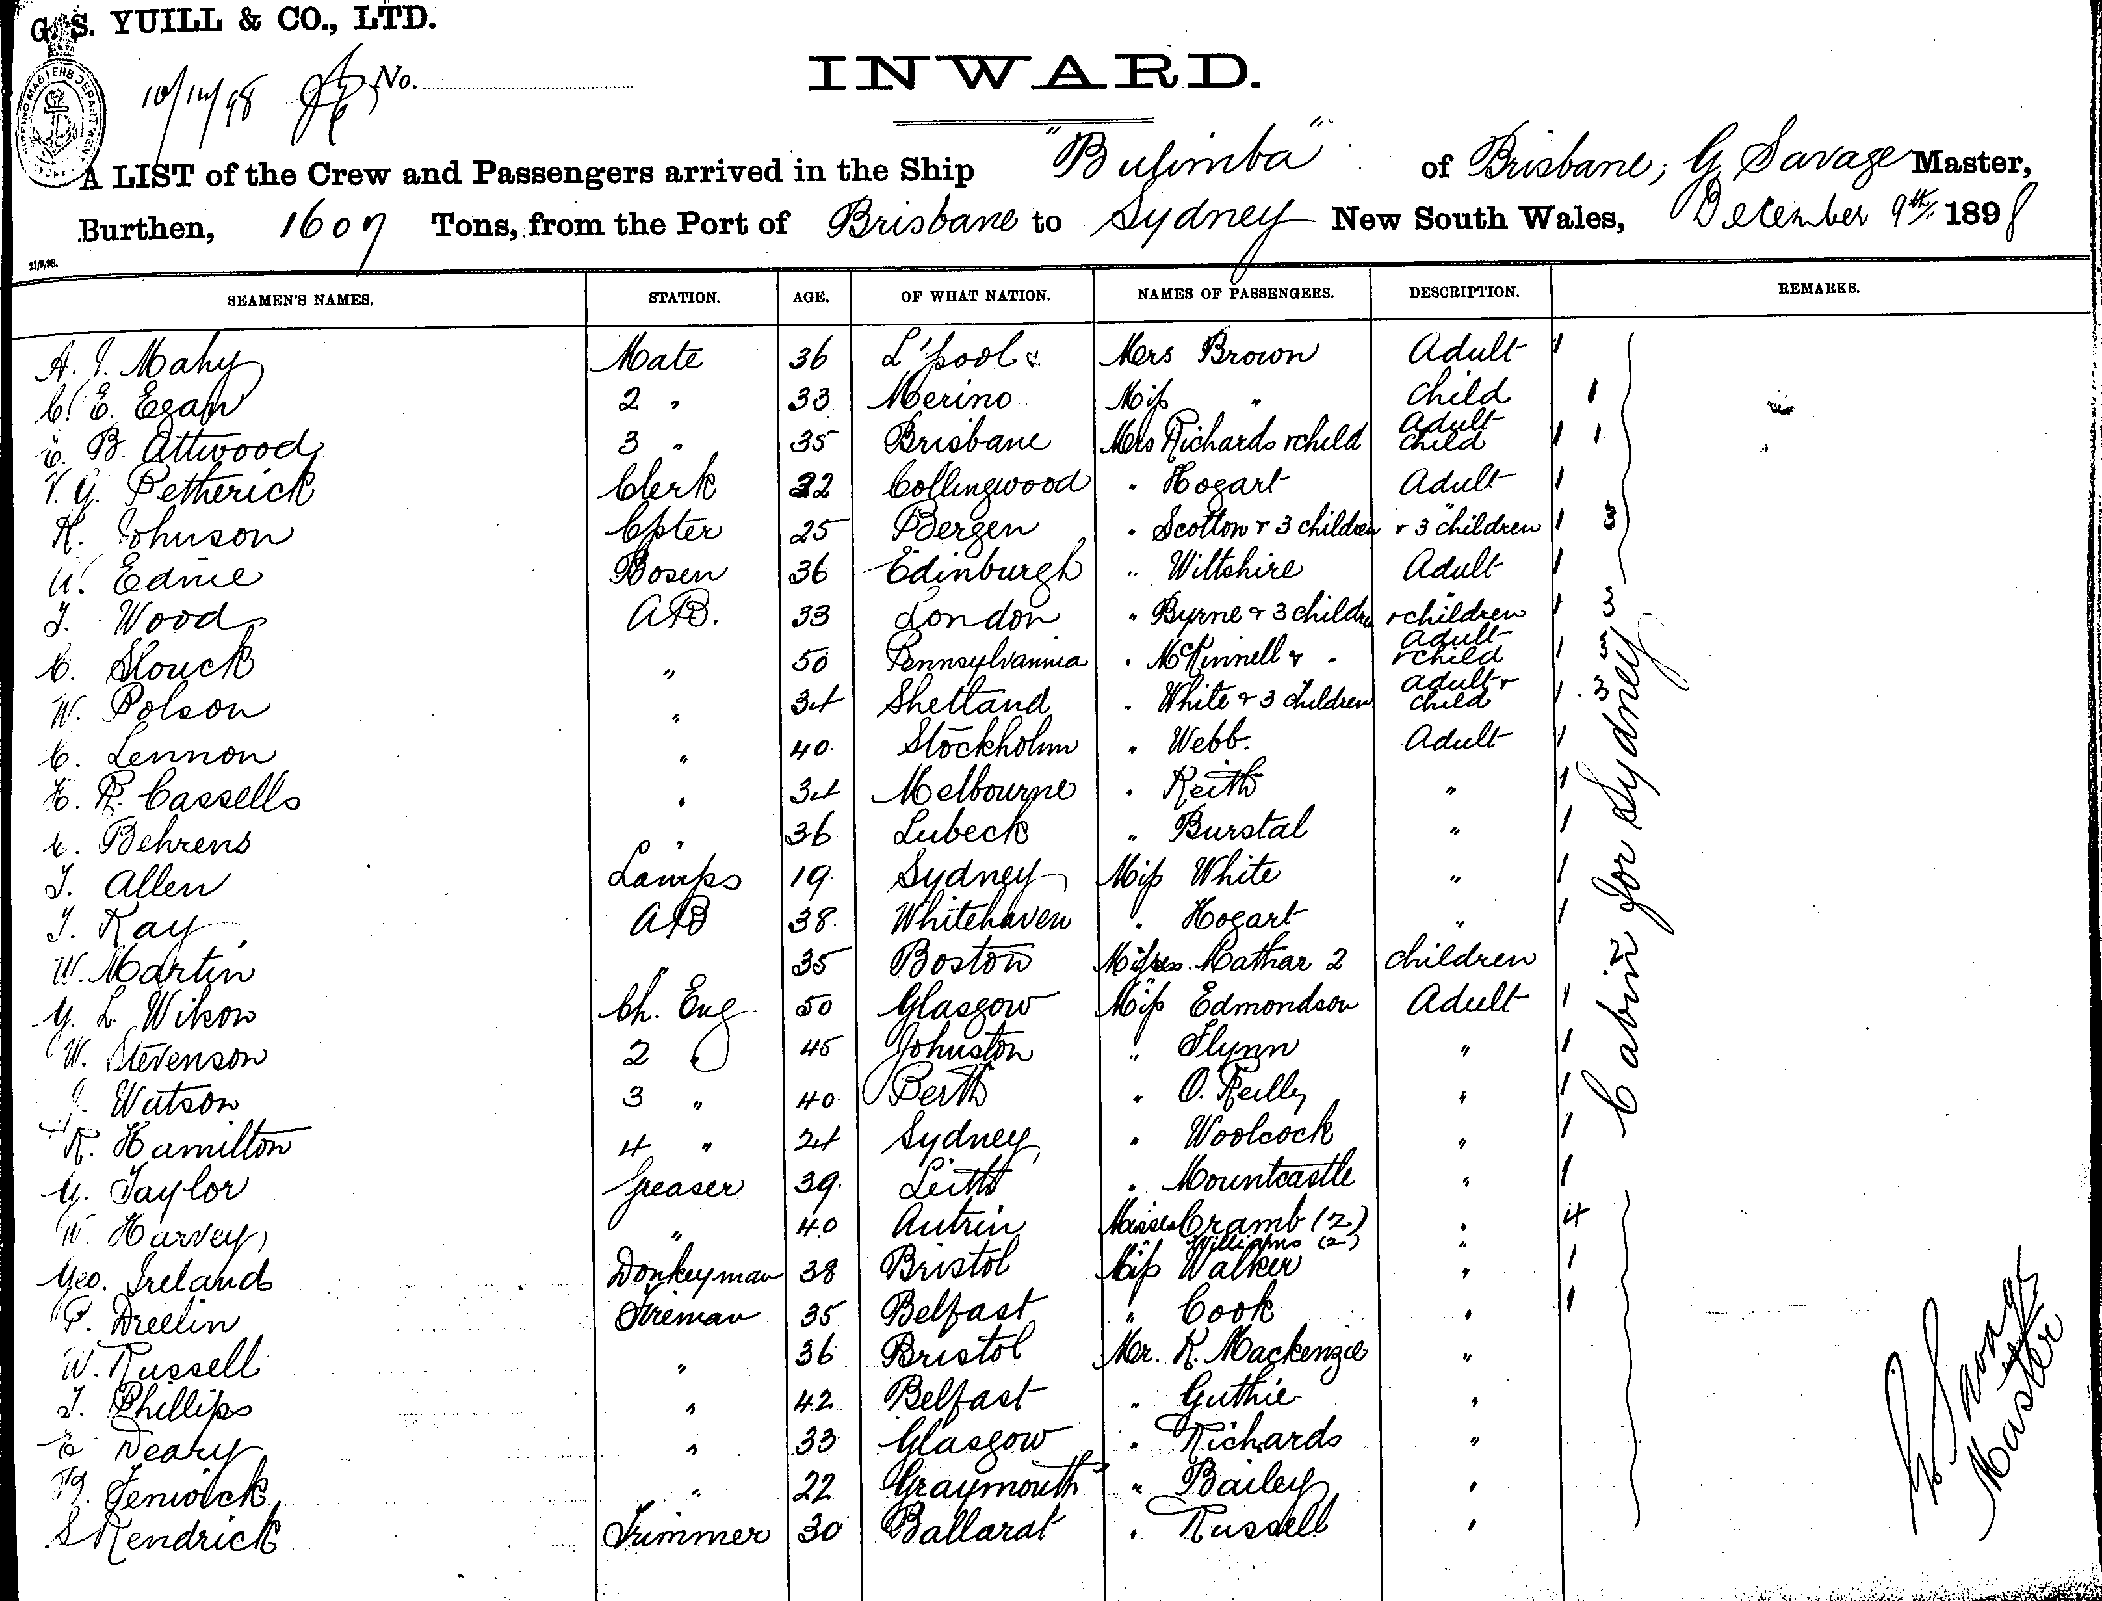 G. S. YUILL & CO., LTD.
10/12/98 No.
INWARD.
A LIST of the Crew and Passengers arrived in the Ship "Bulimba" of Brisbane, G Savage Master,
Burthen, 1607 Tons, from the Port of Brisbane to Sydney New South Wales, December 9th 1898
SEAMEN'S NAMES. STATION. AGE. OF WHAT NATION. NAMES OF PASSENGERS. DESCRIPTION. REMARKS.
A. J. Mahy Mate 36 L'pool Mrs Brown Adult 1
C. E. Egan 2 " 33 Merino Miss " Child 1
E. B. Attwood 3 " 35 Brisbane Mrs Richards & child Adult child 1 1
V. G. Petherick Clerk 22 Collingwood " Hogart Adult 1
K. Johnson Cpter 25 Bergen " Scotton & 3 children & 3 children 1 3
W. Ednie Bosen 36 Edinburgh " Wiltshire Adult 1
J. Wood A.B. 33 London " Byrne & 3 children & children 1 3
C. Slouck " 50 Pennsylvannia " McKinnell & " Adult & child 1 3
W. Polson " 34 Shetland " White & 3 children adult & child 1 3
C. Lennon " 40 Stockholm " Webb. Adult 1
E. R. Cassells " 34 Melbourne " Keith " 1
E. Behrens " 36 Lubeck " Burstal " 1
J. Allen Lamps 19 Sydney Miss White " 1
J. Kay AB 38 Whitehaven " Hogart " 1
W. Martin " 35 Boston Misses Mathar 2 children 2
G. L. Wilson Ch. Eng 50 Glasgow Miss Edmondson Adult 1
W. Stevenson 2 " 45 Johnston " Flynn " 1
J. Watson 3 " 40 Perth " O. Reilly " 1
R. Hamilton 4 " 24 Sydney " Woolcock " 1
G. Taylor Greaser 39 Leith " Mountcastle " 1
W. Harvey " 40 Antrin Misses Cramb (2) " 4
" Williams (2) "
Geo. Ireland Donkeyman 38 Bristol Miss Walker " 1
P. Dreelin Fireman 35 Belfast " Cook " 1
W. Russell " 36 Bristol Mr. K. Mackenzie "
J. Phillips " 42 Belfast " Guthie "
E Neary " 33 Glasgow " Richards "
Fenwick " 22 Graymouth " Bailey "
S Kendrick Trimmer 30 Ballarat " Russell "
Cabin for Sydney
G. Savage
Master